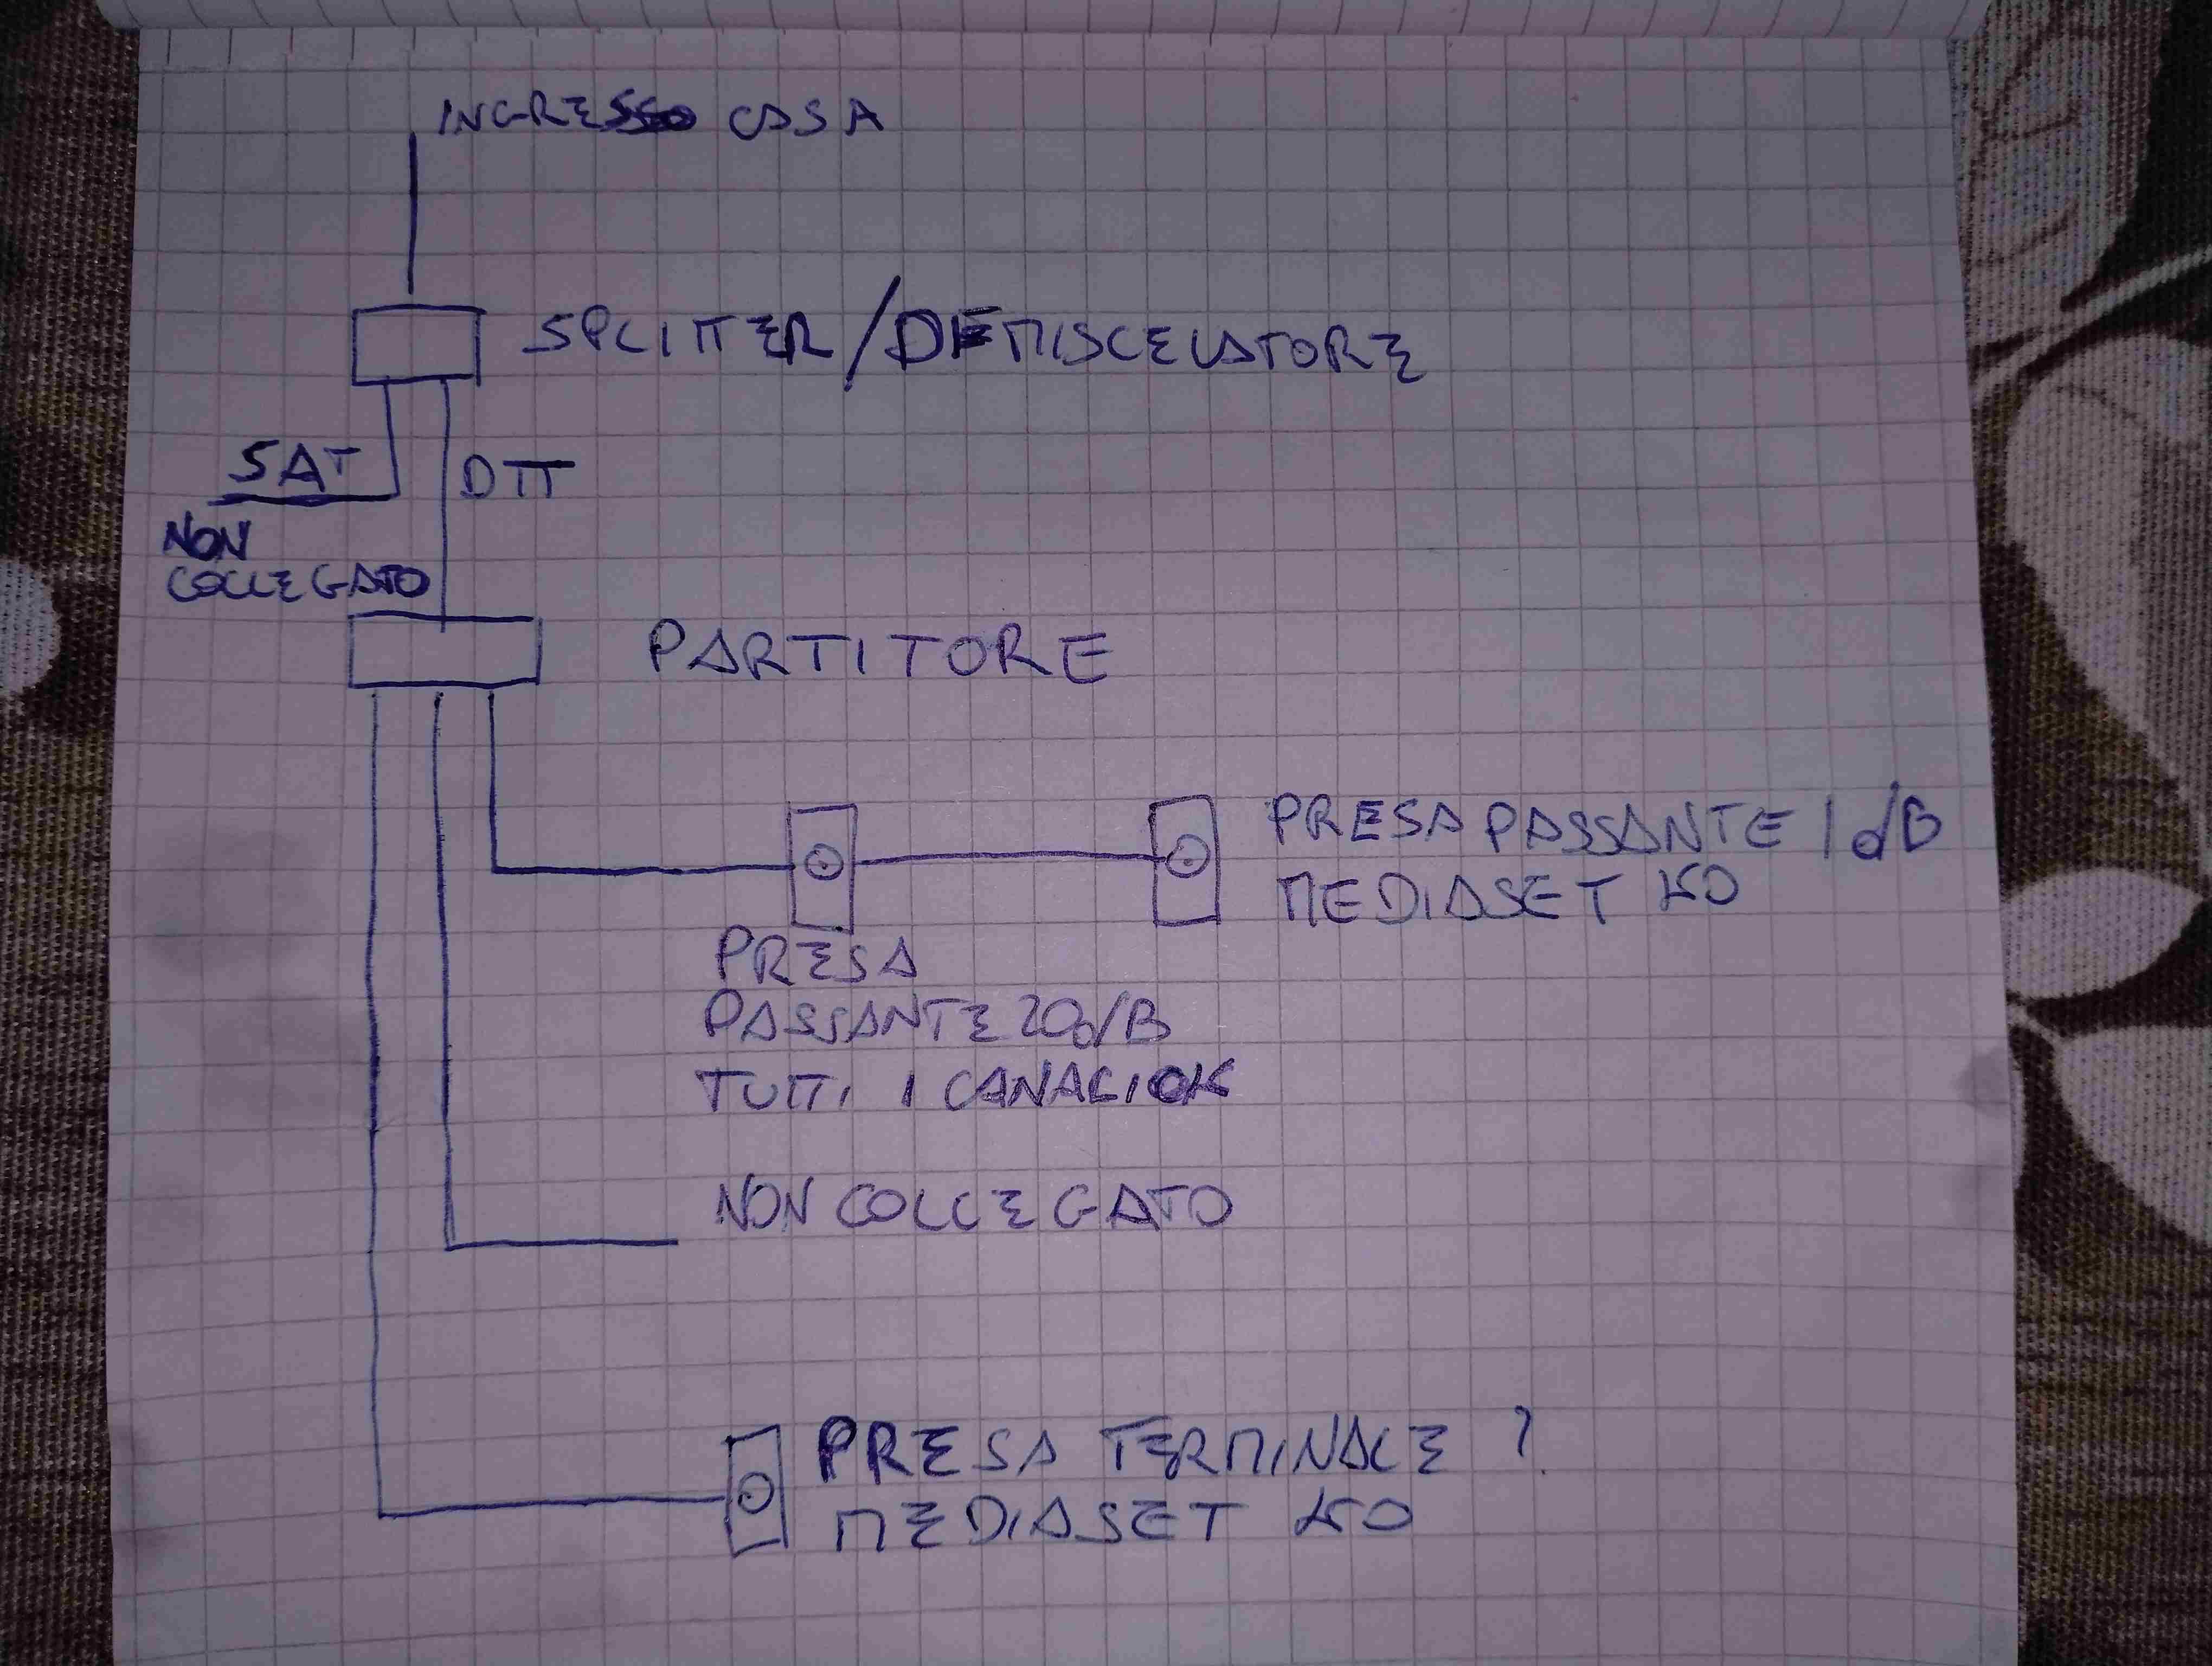 INGRESSO CASA
SPLITTER/DEMISCELATORE
SAT
DTT
NON
COLLEGATO
PARTITORE
PRESA PASSANTE 1 dB
MEDIASET KO
PRESA
PASSANTE 20dB
TUTTI I CANALI OK
NON COLLEGATO
PRESA TERMINALE ?
MEDIASET KO